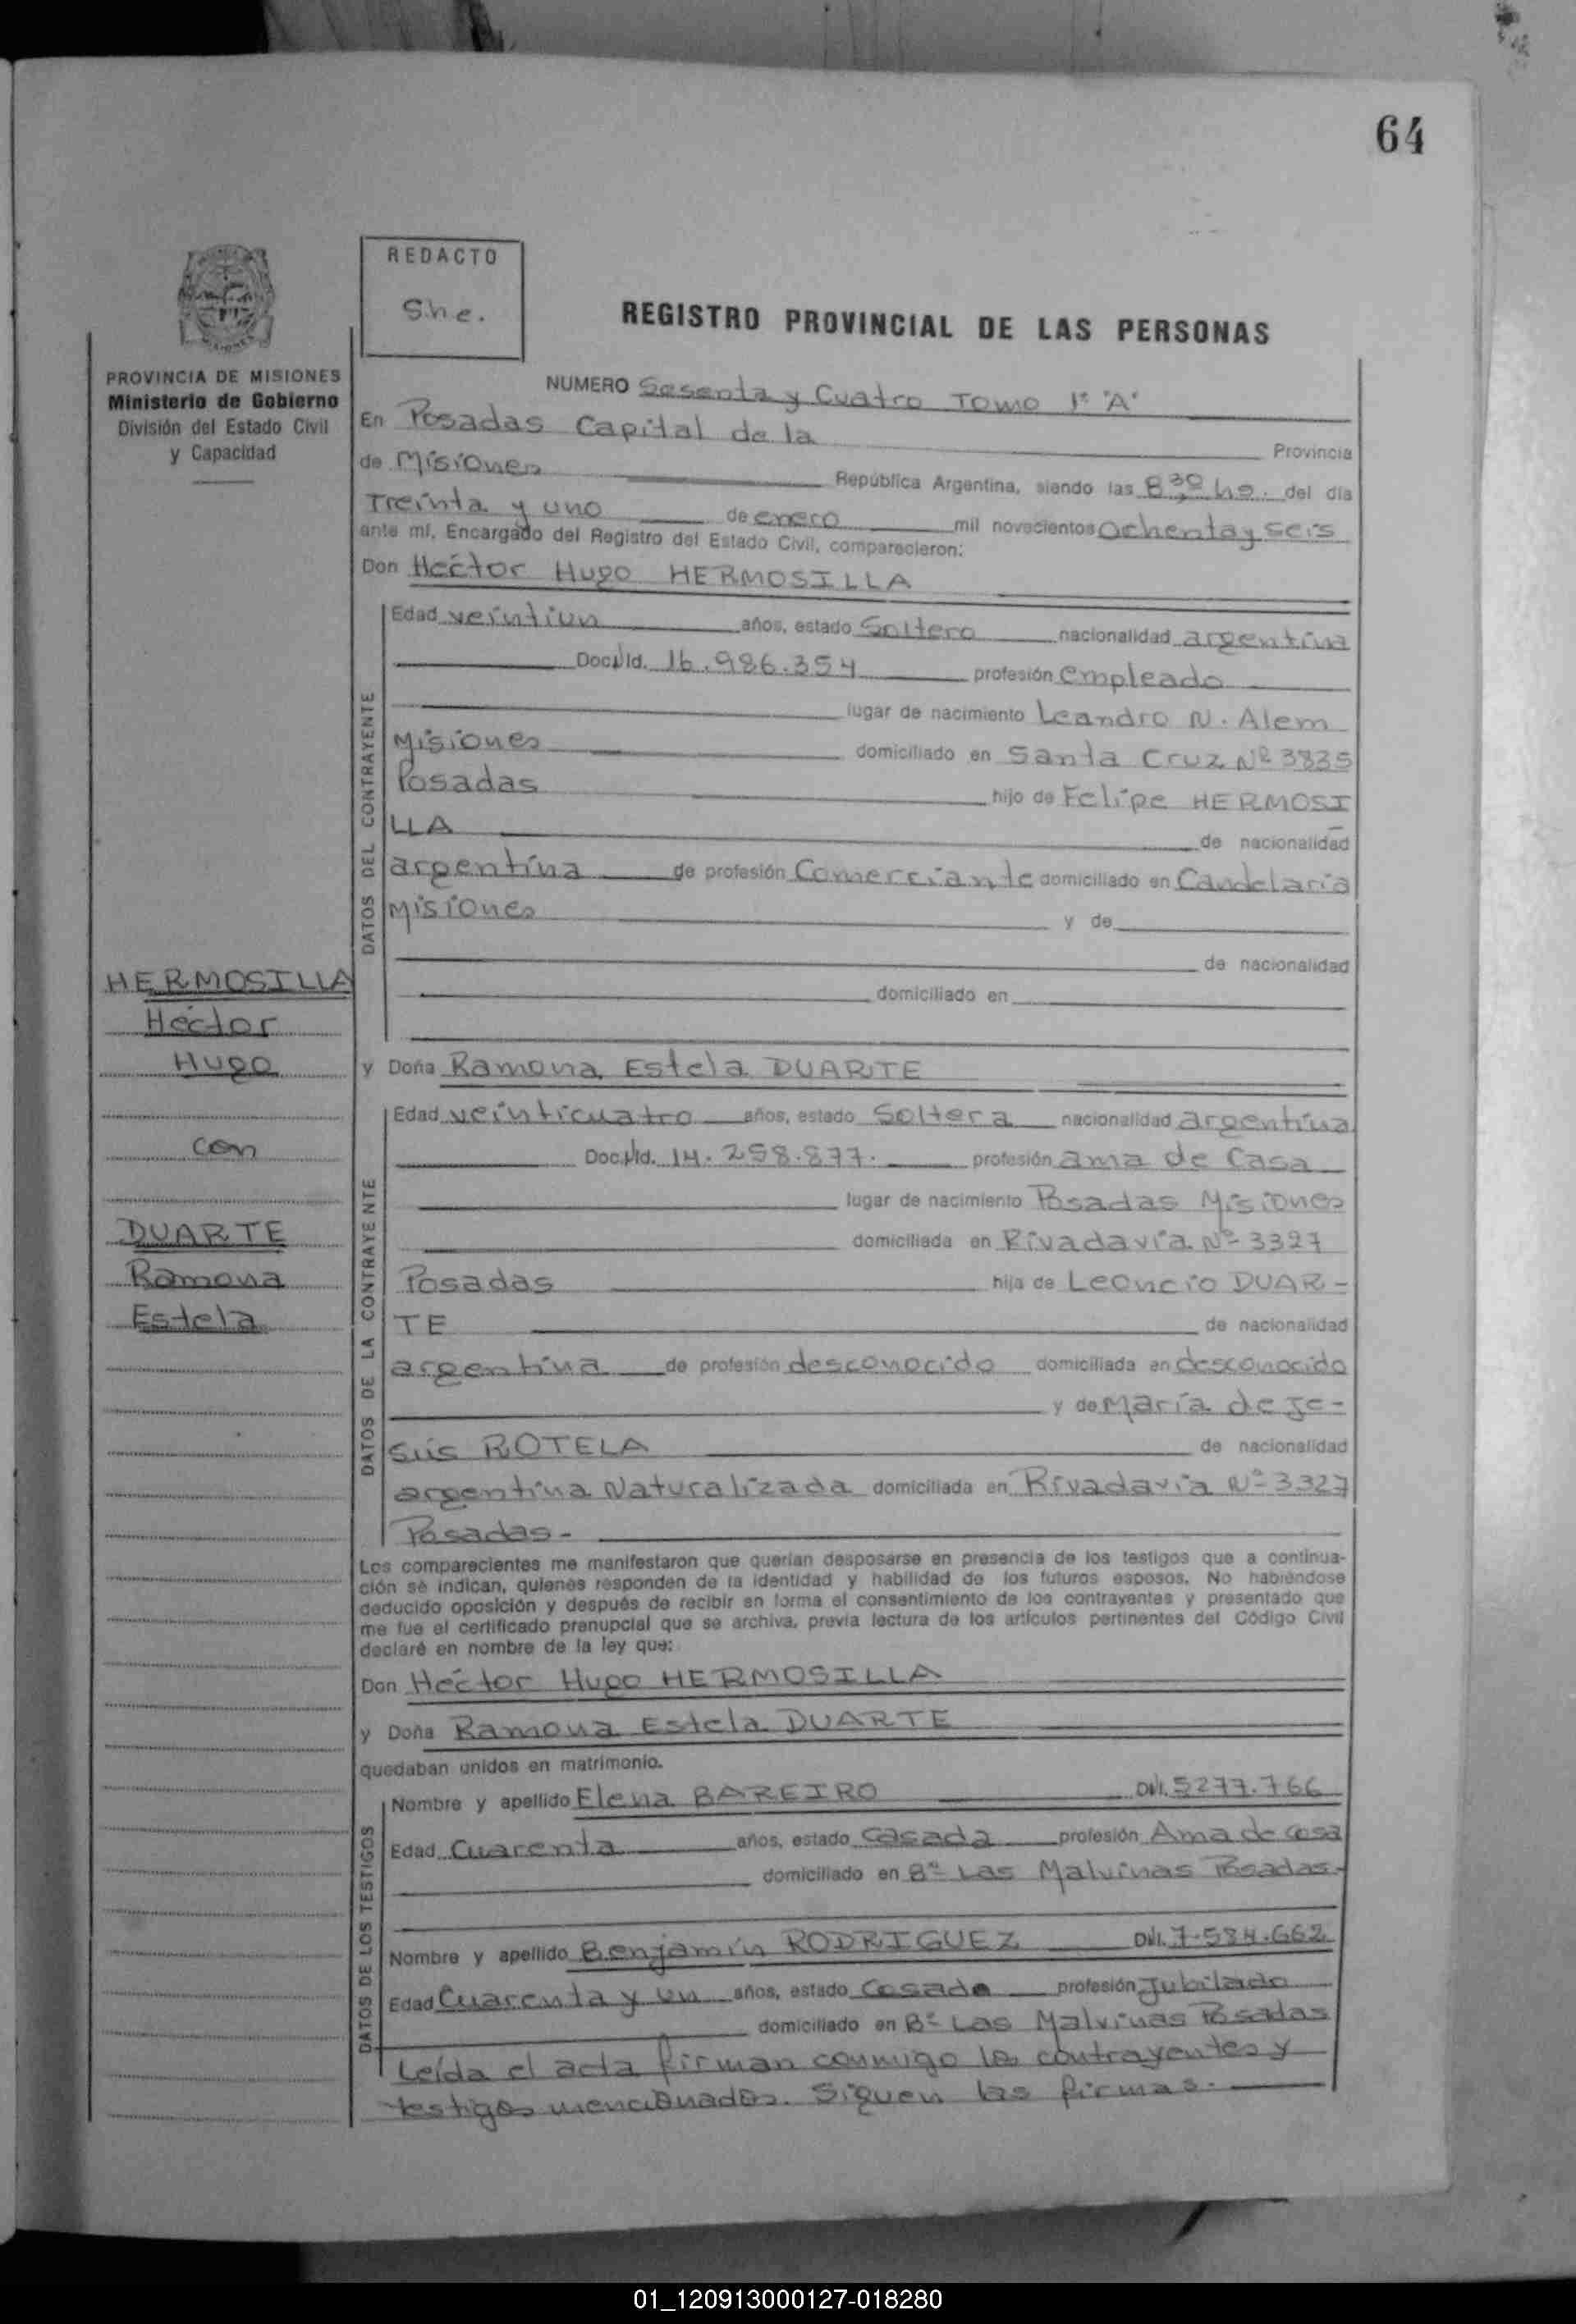 64
REDACTO
S.h.e.
REGISTRO PROVINCIAL DE LAS PERSONAS
PROVINCIA DE MISIONES
Ministerio de Gobierno
División del Estado Civil
y Capacidad
NUMERO Sesenta y Cuatro Tomo 1º "A"
En Posadas Capital de la Provincia
de Misiones República Argentina, siendo las 8,30 hs. del día
Treinta y uno de enero mil novecientos ochenta y seis
ante mí, Encargado del Registro del Estado Civil, comparecieron:
Don Héctor Hugo HERMOSILLA
DATOS DEL CONTRAYENTE
Edad veintiun años, estado Soltero nacionalidad argentina
Doc. Nld. 16.986.354 profesión empleado
lugar de nacimiento Leandro N. Alem
Misiones domiciliado en Santa Cruz Nº 3835
Posadas hijo de Felipe HERMOSI
LLA de nacionalidad
argentina de profesión Comerciante domiciliado en Candelaria
Misiones y de
de nacionalidad
domiciliado en
HERMOSILLA
Héctor
Hugo
con
DUARTE
Ramona
Estela
y Doña Ramona Estela DUARTE
DATOS DE LA CONTRAYENTE
Edad veinticuatro años, estado Soltera nacionalidad argentina
Doc. Nld. 14.258.877. profesión ama de Casa
lugar de nacimiento Posadas Misiones
domiciliada en Rivadavia Nº 3327
Posadas hija de Leoncio DUAR-
TE de nacionalidad
argentina de profesión desconocido domiciliada en desconocido
y de María de Je-
sús ROTELA de nacionalidad
argentina Naturalizada domiciliada en Rivadavia Nº 3327
Posadas-
Los comparecientes me manifestaron que querían desposarse en presencia de los testigos que a continua-
ción se indican, quienes responden de la identidad y habilidad de los futuros esposos. No habiéndose
deducido oposición y después de recibir en forma el consentimiento de los contrayentes y presentado que
me fue el certificado prenupcial que se archiva, previa lectura de los artículos pertinentes del Código Civil
declaré en nombre de la ley que:
Don Héctor Hugo HERMOSILLA
y Doña Ramona Estela DUARTE
quedaban unidos en matrimonio.
DATOS DE LOS TESTIGOS
Nombre y apellido Elena BAREIRO DNI. 5277.766
Edad Cuarenta años, estado Casada profesión Ama de casa
domiciliado en Bº Las Malvinas Posadas-
Nombre y apellido Benjamín RODRIGUEZ DNI. 7.584.662
Edad Cuarenta y un años, estado Casado profesión Jubilado
domiciliado en Bº Las Malvinas Posadas
Leída el acta firman conmigo los contrayentes y
testigos mencionados. Siguen las firmas.
01_120913000127-018280